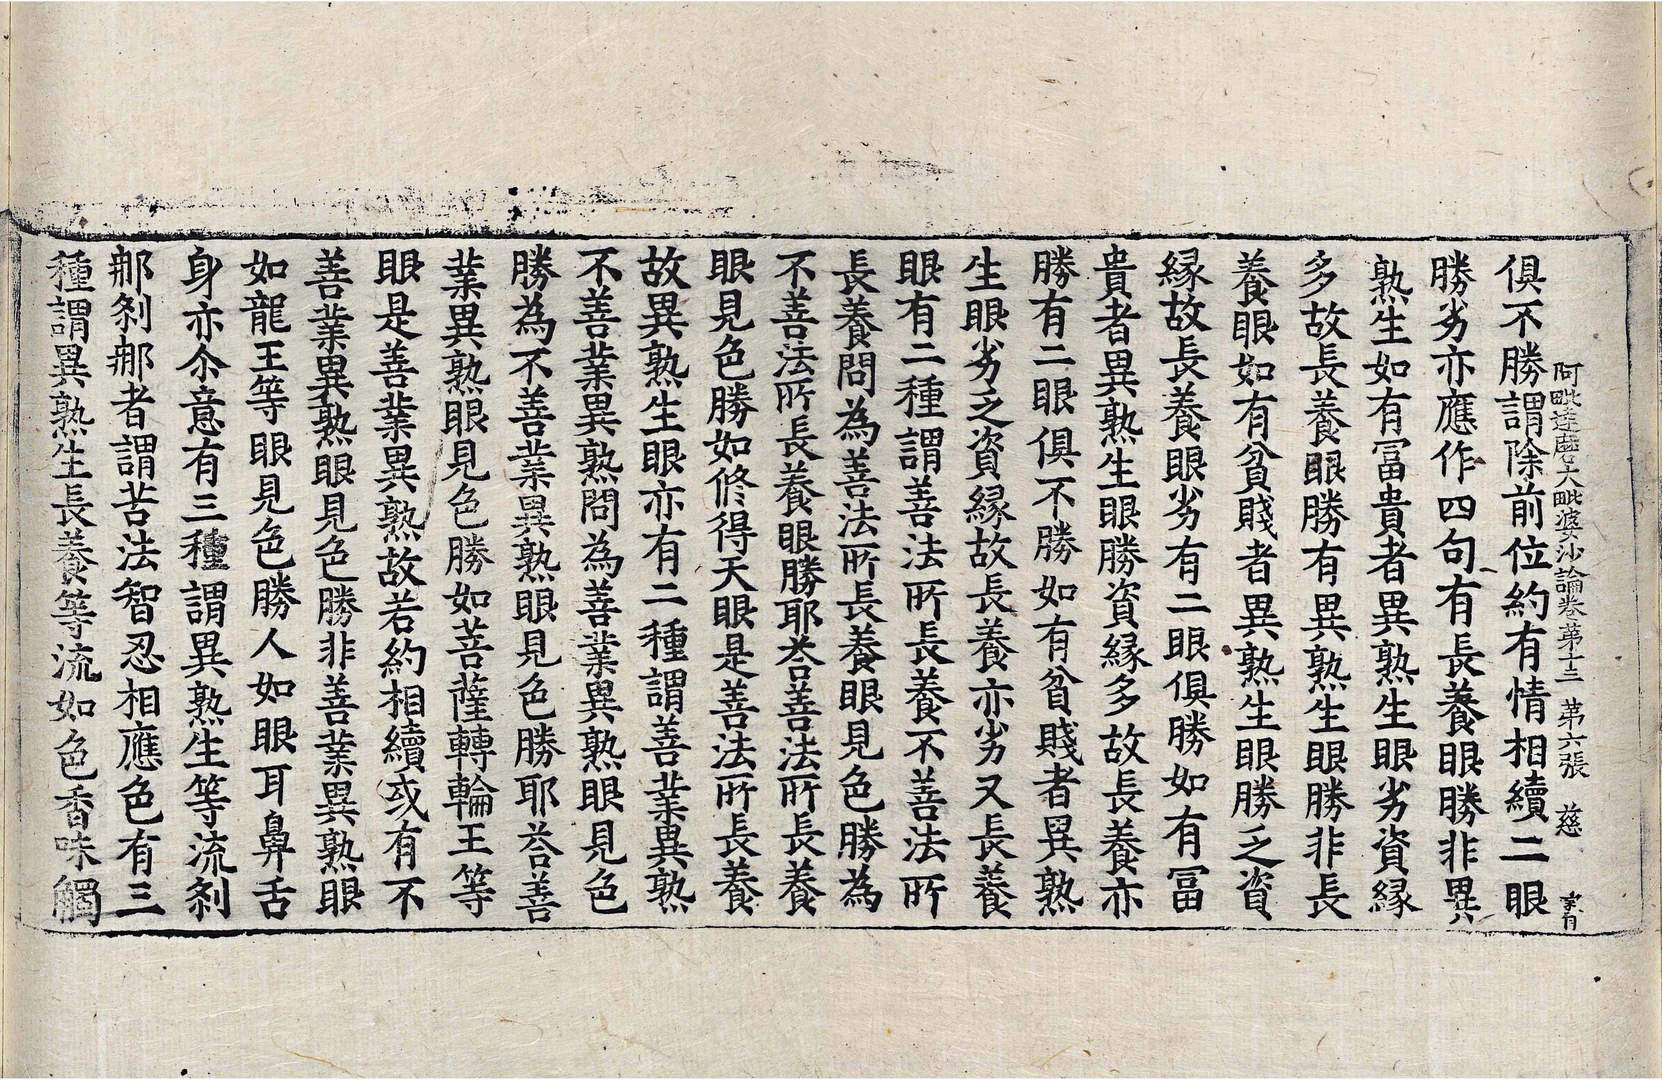 阿毗達磨大毗婆沙論卷第十三 第六張 慈
俱不勝謂除前位約有情相續二眼
勝劣亦應作四句有長養眼勝非異
熟生如有冨貴者異熟生眼劣資緣
多故長養眼勝有異熟生眼勝非長
養眼如有貧賤者異熟生眼勝乏資
緣故長養眼劣有二眼俱勝如有冨
貴者異熟生眼勝資緣多故長養亦
勝有二眼俱不勝如有貧賤者異熟
生眼劣乏資緣故長養亦劣又長養
眼有二種謂善法所長養不善法所
長養問為善法所長養眼見色勝為
不善法所長養眼勝耶荅善法所長養
眼見色勝如修得天眼是善法所長養
故異熟生眼亦有二種謂善業異熟
不善業異熟問為善業異熟眼見色
勝為不善業異熟眼見色勝耶荅善
業異熟眼見色勝如菩薩轉輪王等
眼是善業異熟故若約相續或有不
善業異熟眼見色勝非善業異熟眼
如龍王等眼見色勝人如眼耳鼻舌
身亦尒意有三種謂異熟生等流刹
那刹那者謂苦法智忍相應色有三
種謂異熟生長養等流如色香味觸